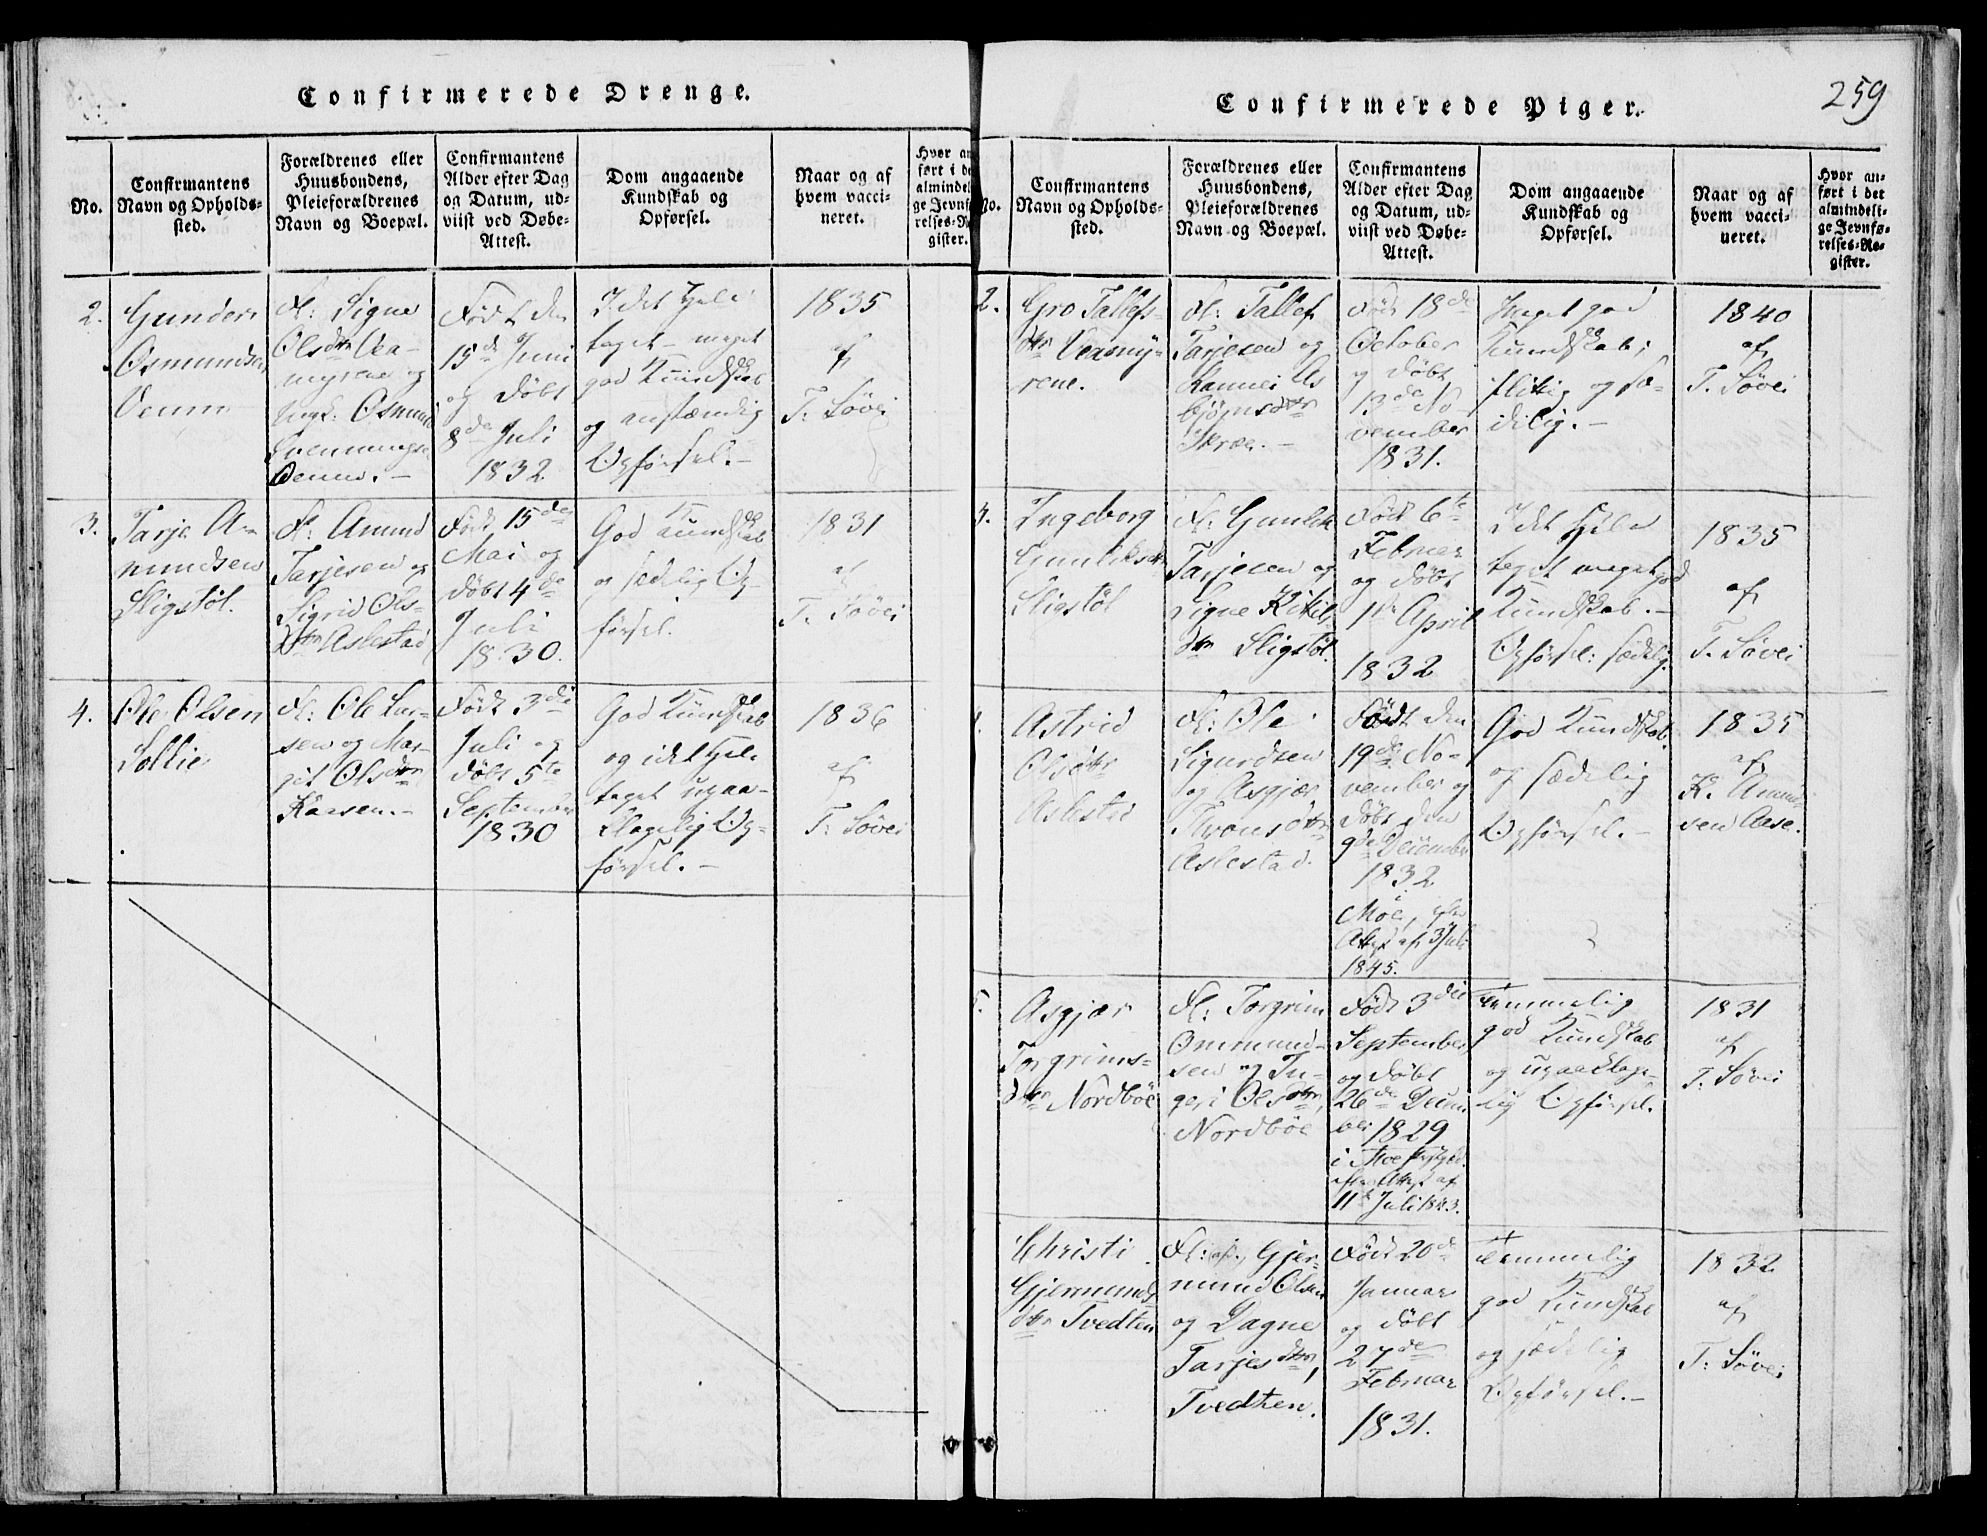 Confirmerede Drenge.
No.
Confirmantens
Navn og Opholds-
sted.
Forældrenes eller
Huusbondens,
Pleieforældrenes
Navn og Boepæl.
Confirmantens
Alder efter Dag
og Datum, ud-
viist ved Døbe-
Attest.
Dom angaaende
Kundskab og
Opførsel.
Naar og af
hvem vacci-
neret.
Hvor an
ført i de
almindel
ge Jevnf
relses-R
gister.
2.
Gunder
Osmundsen
Venum
Fl: Signe
Olsdtr Vea-
myrene og
Ungk. Osmund
Svenningsen
Venum.-
Født den
15de Juni
og døbt
8de Juli
1832
I det Hele
taget meget
god Kundskab
og anstændig
Opførsel.-
1835
af
T. Søvei
3.
Tarje A-
mundsen
Sligstöl.
Fl: Amund
Tarjesen og
Sigrid Ols-
dtr Aslestad
Født 15de
Mai og
døbt 4de
Juli
1830.
God Kundskab
og sædelig Op-
førsel.
1831
af
T. Søvei
4.
Ole Olsen
Lollie
Fl: Ole Lar-
sen og Mar-
git Olsdtr
Kaasen.-
Født 3die
Juli og
døbt 5te
September
1830
God Kundskab
og i det Hele
taget upaa-
klagelig Op-
førsel.-
1836
af
T. Søvei
259
Confirmerede Piger.
No.
Confirmantens
Navn og Opholds-
sted.
Forældrenes eller
Huusbondens,
Pleieforældrenes
Navn og Boepæl.
Confirmantens
Alder efter Dag
og Datum, ud-
viist ved Døbe-
Attest.
Dom angaaende
Kundskab og
Opførsel.
Naar og af
hvem vacci-
neret.
Hvor an-
ført i det
almindeli-
ge Jevnfø-
relses-Re-
gister.
2.
Gro Tallefs-
dtr Veamy-
rene.
Fl: Tallef
Tarjesen og
As
bjørnsdtr
Skræe.-
Født 18de
October
og døbt
13de No-
vember
1831.
Meget god
Kundskab;
flittig og sæ-
delig.-
1840
af
T. Søvei
3.
Ingeborg
Gunleiksdtr
Sligstöl
Fl: Gunleik
Tarjesen og
Signe Kitils-
dtr Sligstöl.
Født 6te
Februar
og døbt
1ste April
1832
I det Hele
taget meget god
Kundskab.-
Opførsel: sædelig.
1835
af
T. Søvei
Astrid
Olsdtr
Aslestad
Fl: Ole
Sigurdsen
og Asgjær
Thronsdtr
Aslestad.
Født den
19de No-
vember og
døbt den
9de December
1832
Moe, efter
Attest af 3 Juli
1845.
God Kundskab
og sædelig
Opførsel.-
1835
af
K. Amund
sen Aase.
5.
Asgjær
Torgrims-
dtr Nordböe
Fl: Torgrim
Ommund-
sen og In-
geri Olsdtr,
Nordböe
Født 3die
September
og døbt
26de Decem
ber 1829
i Moe
efter Attest af
11te Juli 1843.
Temmelig
god Kundskab
og upaaklage-
lig Opførsel.
1831
af
T. Søvei
Christi
Gjermunds-
dtr Tvedten
Fl: afd. Gjer-
mund Olsen
og Dagne
Tarjesdtr,
Tvedten.
Født 20de
Januar
og døbt
27de
Februar
1831.
Temmelig
god Kundskab
og sædelig
Opførsel.-
1832
af
T. Søvei